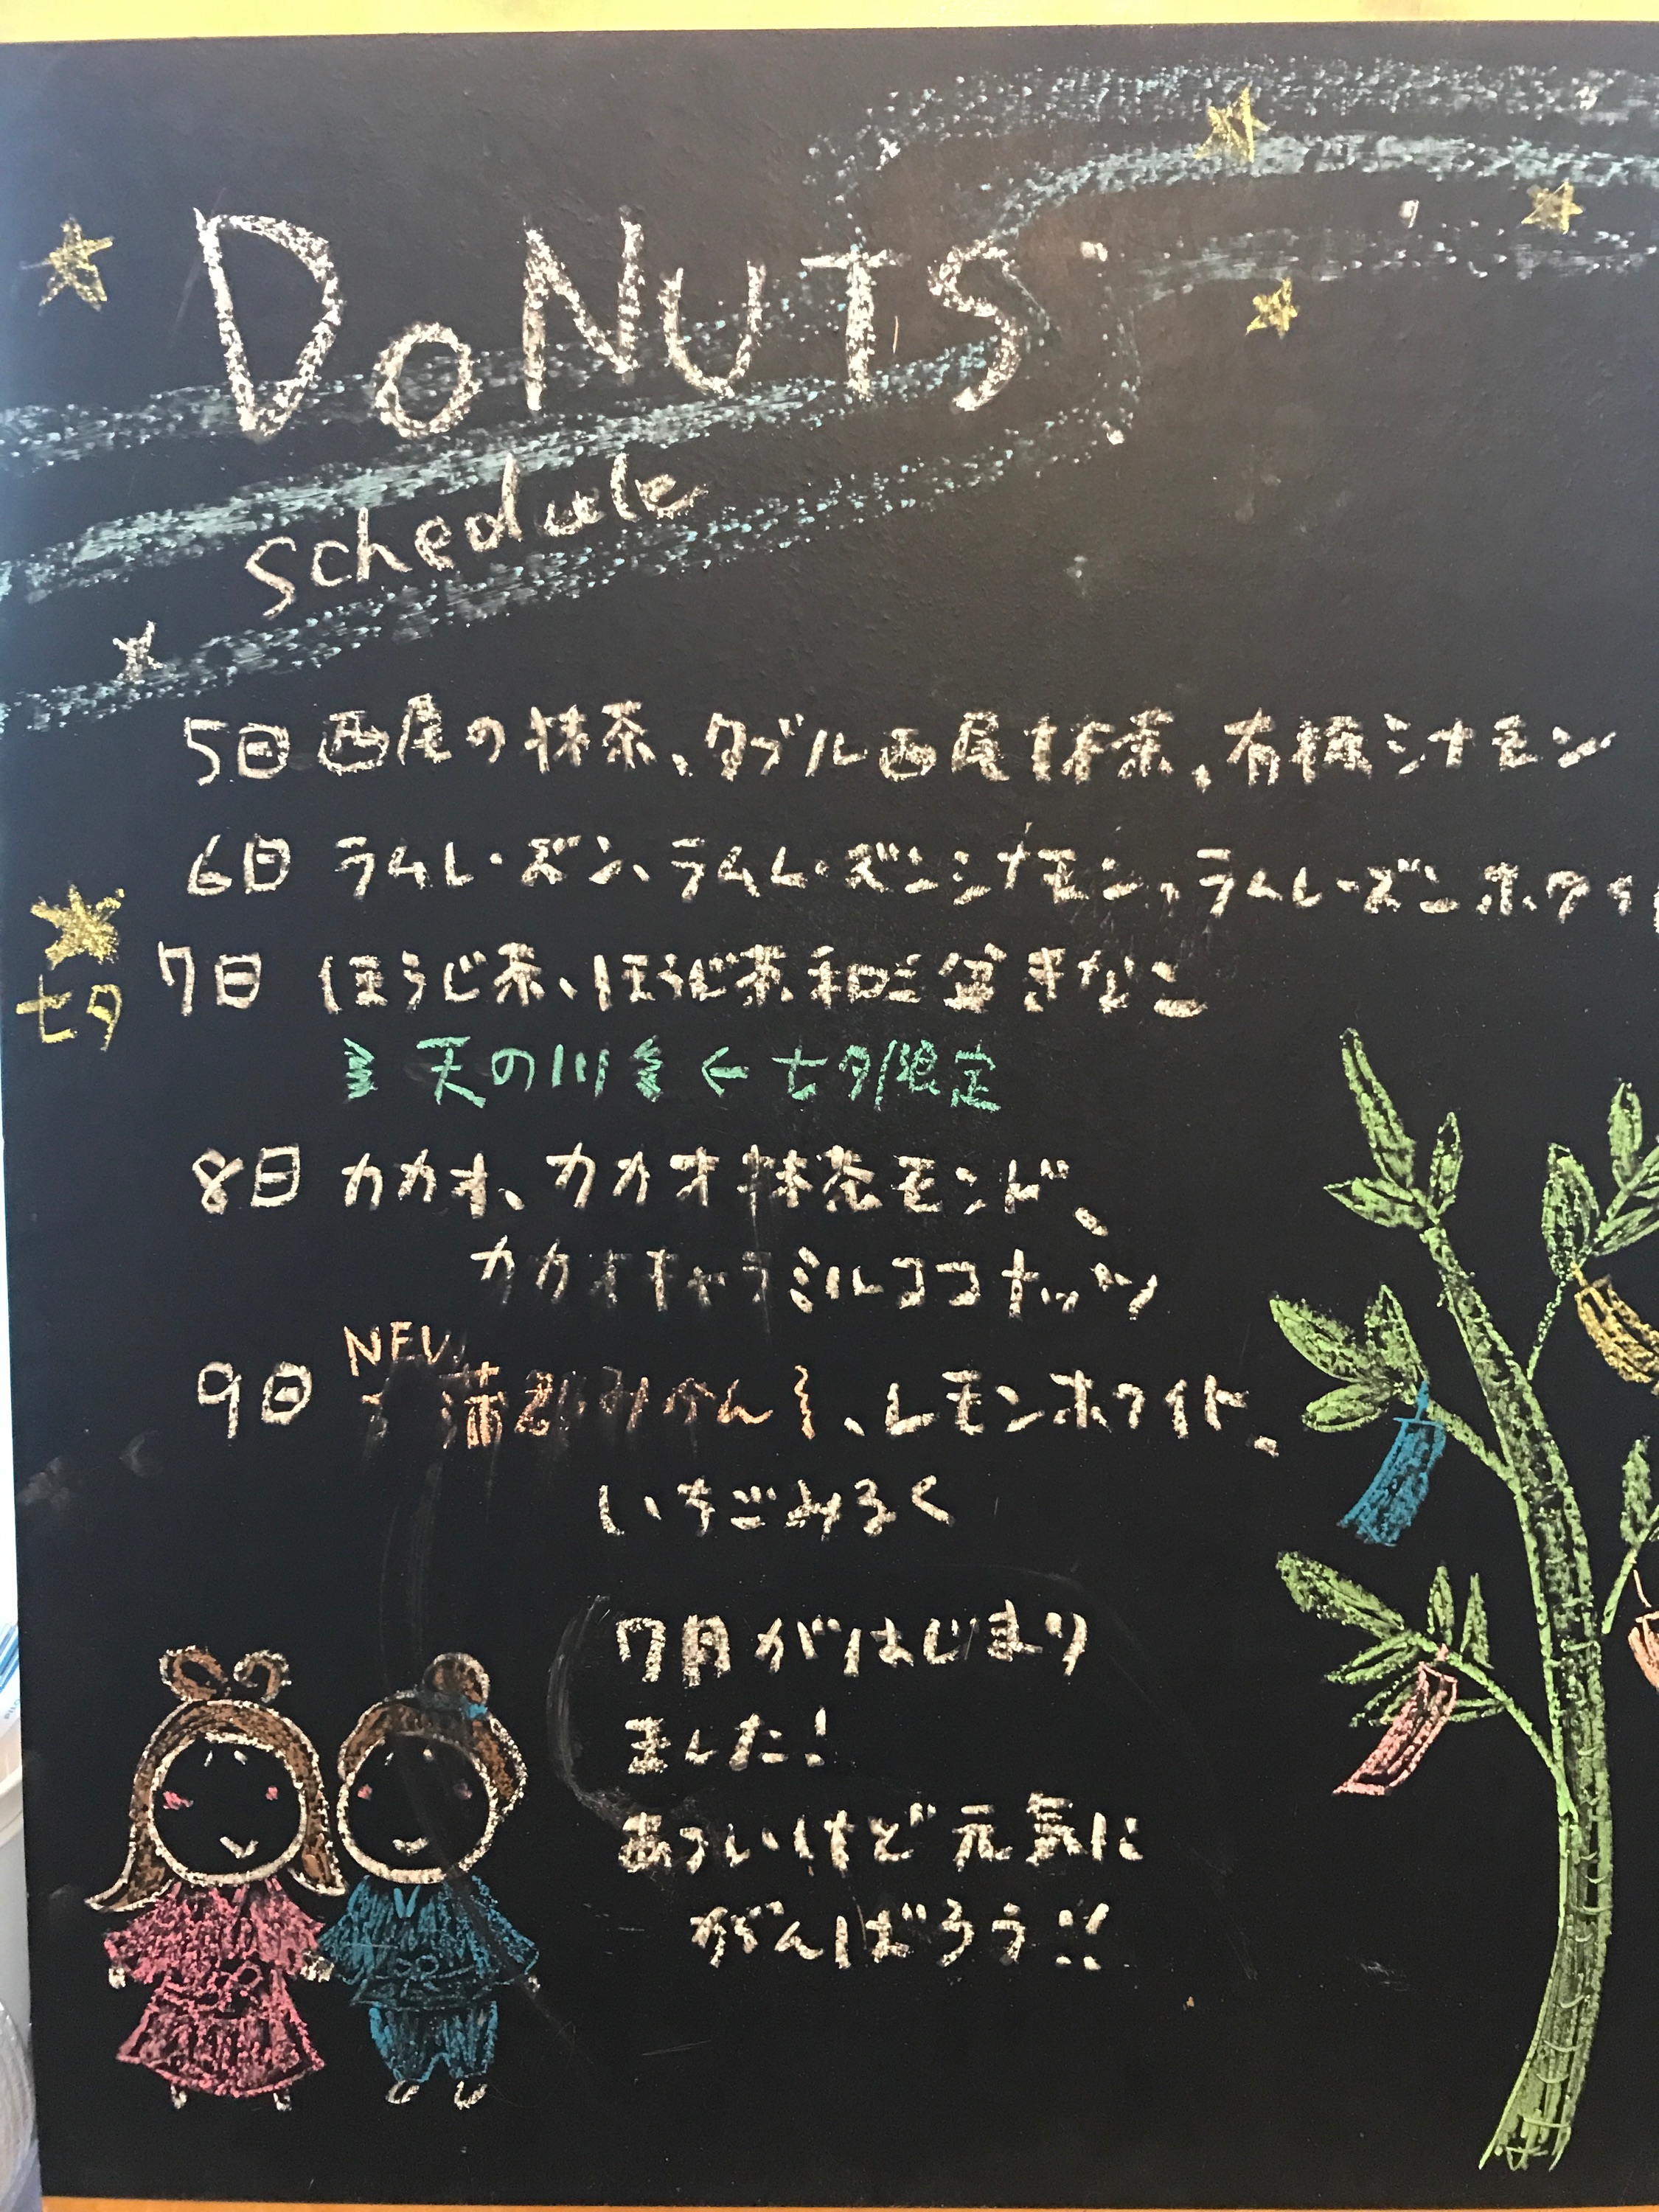 DoNUTS
schedule
5日 西尾の抹茶、ダブル西尾抹茶、有機シナモン
6日 ラムレーズン、ラムレーズンシナモン、ラムレーズンホワイ
七夕 7日 ほうじ茶、ほうじ茶和三盆きなこ
天の川 ← 七夕限定
8日 カカオ、カカオ抹茶モンド、
カカオキャラミルココナッツ
NEW
9日 蒲郡みかん、レモンホワイト、
いちごみるく
7月がはじまり
ました!
あついけど元気に
がんばろう!!